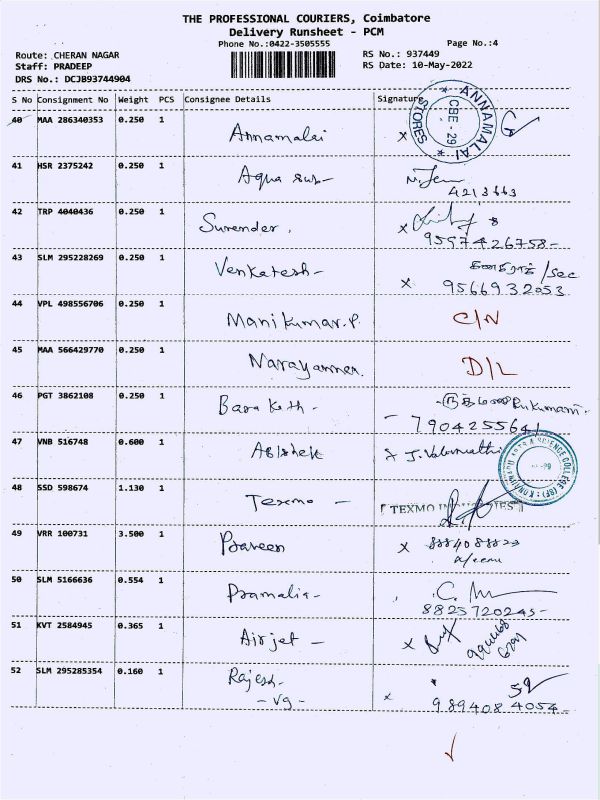 THE PROFESSIONAL COURIERS, Coimbatore
Delivery Runsheet - PCM
Phone No.:0422-3505555 Page No.:4
Route: CHERAN NAGAR RS No.: 937449
Staff: PRADEEP RS Date: 10-May-2022
DRS No.: DCJB93744904
S No Consignment No Weight PCS Consignee Details Signature
40 MAA 286340353 0.250 1 Annamalai x ANNAMALAI STORES CBE - 29
41 HSR 2375242 0.250 1 Aqua sub-
4213663
42 TRP 4040436 0.250 1 Surender. x
9597426758-
43 SLM 295228269 0.250 1 Venkatesh- /sec
x 9566932053
44 VPL 498556706 0.250 1 Manikumar.P. C/N
45 MAA 566429770 0.250 1 D/L
46 PGT 3862108 0.250 1 Rukumani
- 7904255641
47 VNB 516748 0.600 1 Abishek
48 SSD 598674 1.130 1 Texmo - TEXMO INDUSTRIES
49 VRR 100731 3.500 1 Praveen x
50 SLM 5166636 0.554 1
8825720245-
51 KVT 2584945 0.365 1 Airjet - x
52 SLM 295285354 0.160 1 Rajesh-
- vg - x 9894084054-